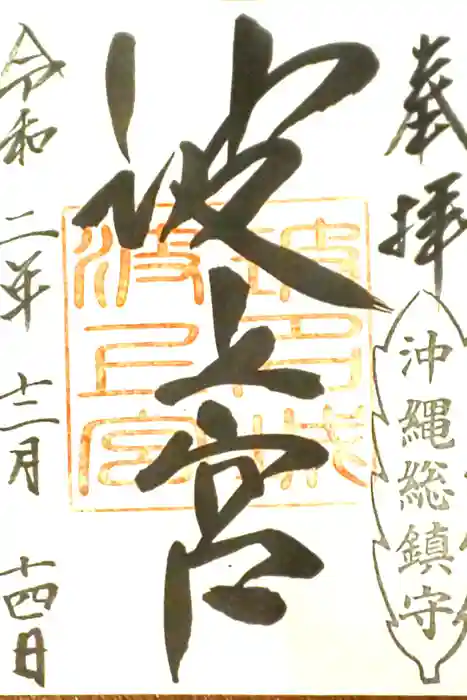 奉拝
沖縄総鎮守
波上宮
波上宮
令和 二年 十二月 十四日